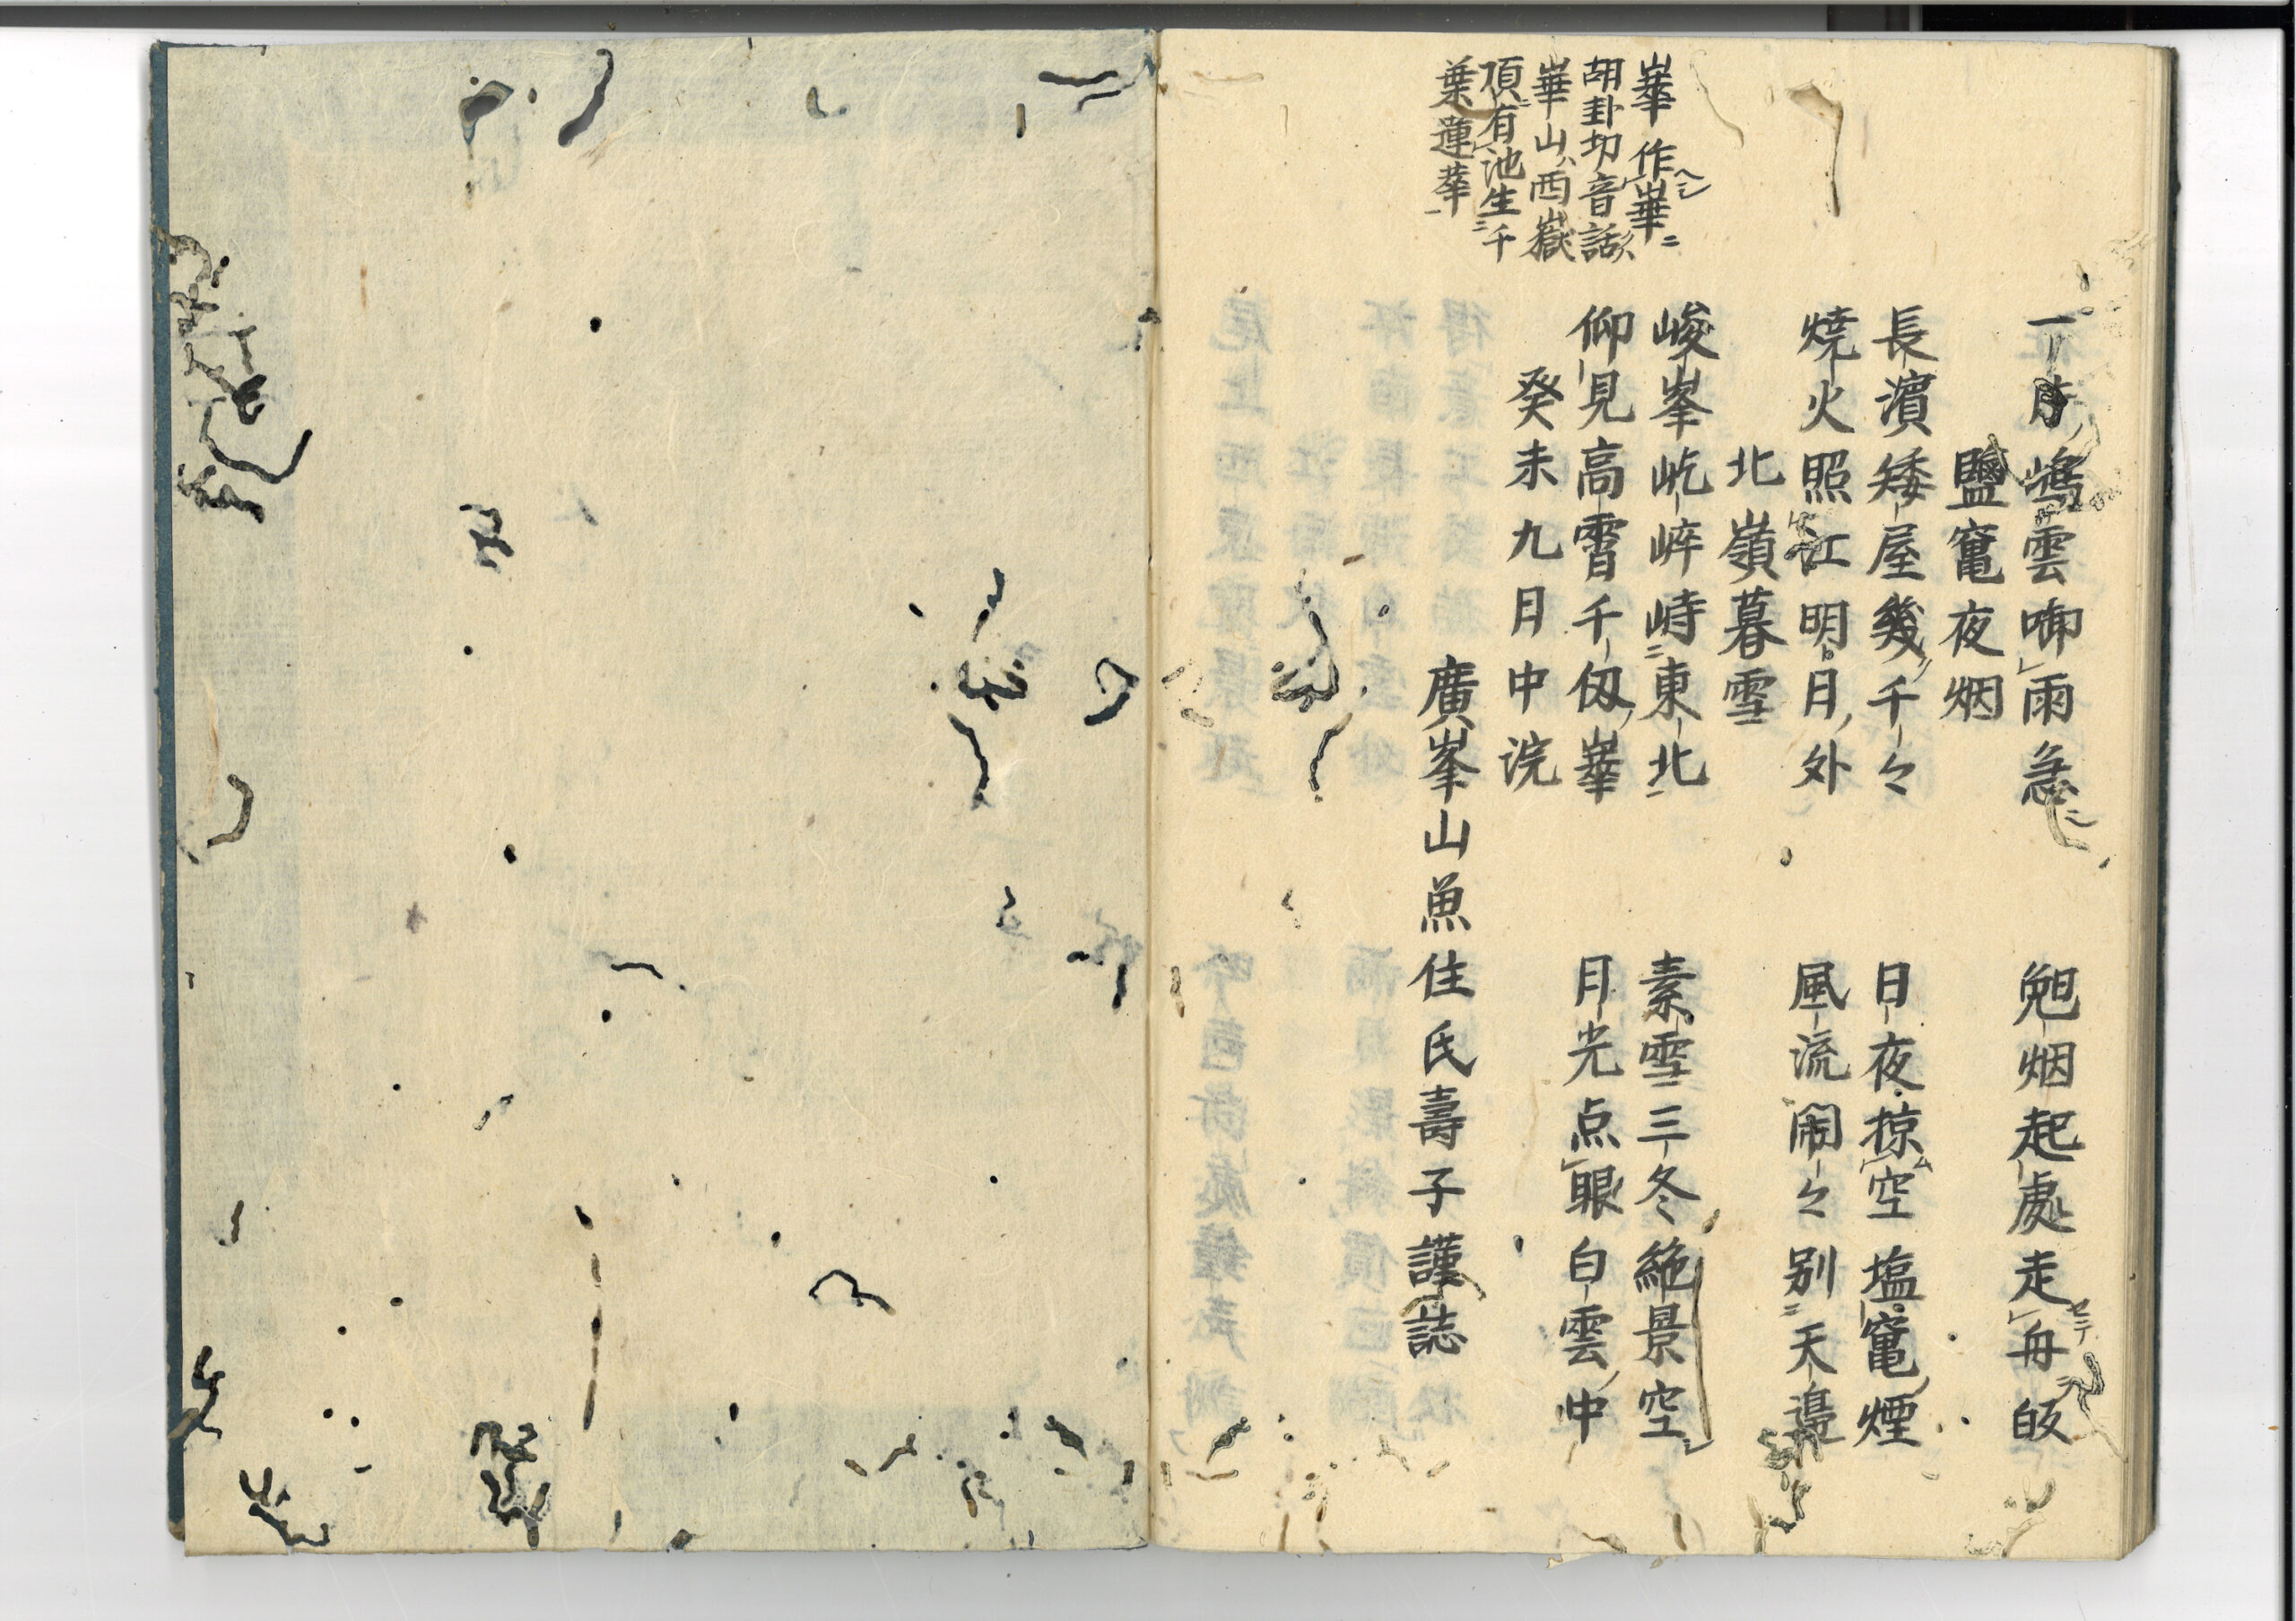 崋作崋
胡卦切音話
崋山西嶽
頂有池生千
葉蓮華
一片嶋雲啣雨急　烟起處走舟皈
鹽竃夜烟
長濵矮屋幾千々　日夜掠空塩竃煙
焼火照江明月外　風流閙々別天邉
北嶺暮雪
峻峯屹崪峙東北　素雪三冬絶景空
仰見高霄千仭崋　月光点眼白雲中
癸未九月中浣
廣峯山魚住氏壽子謹誌